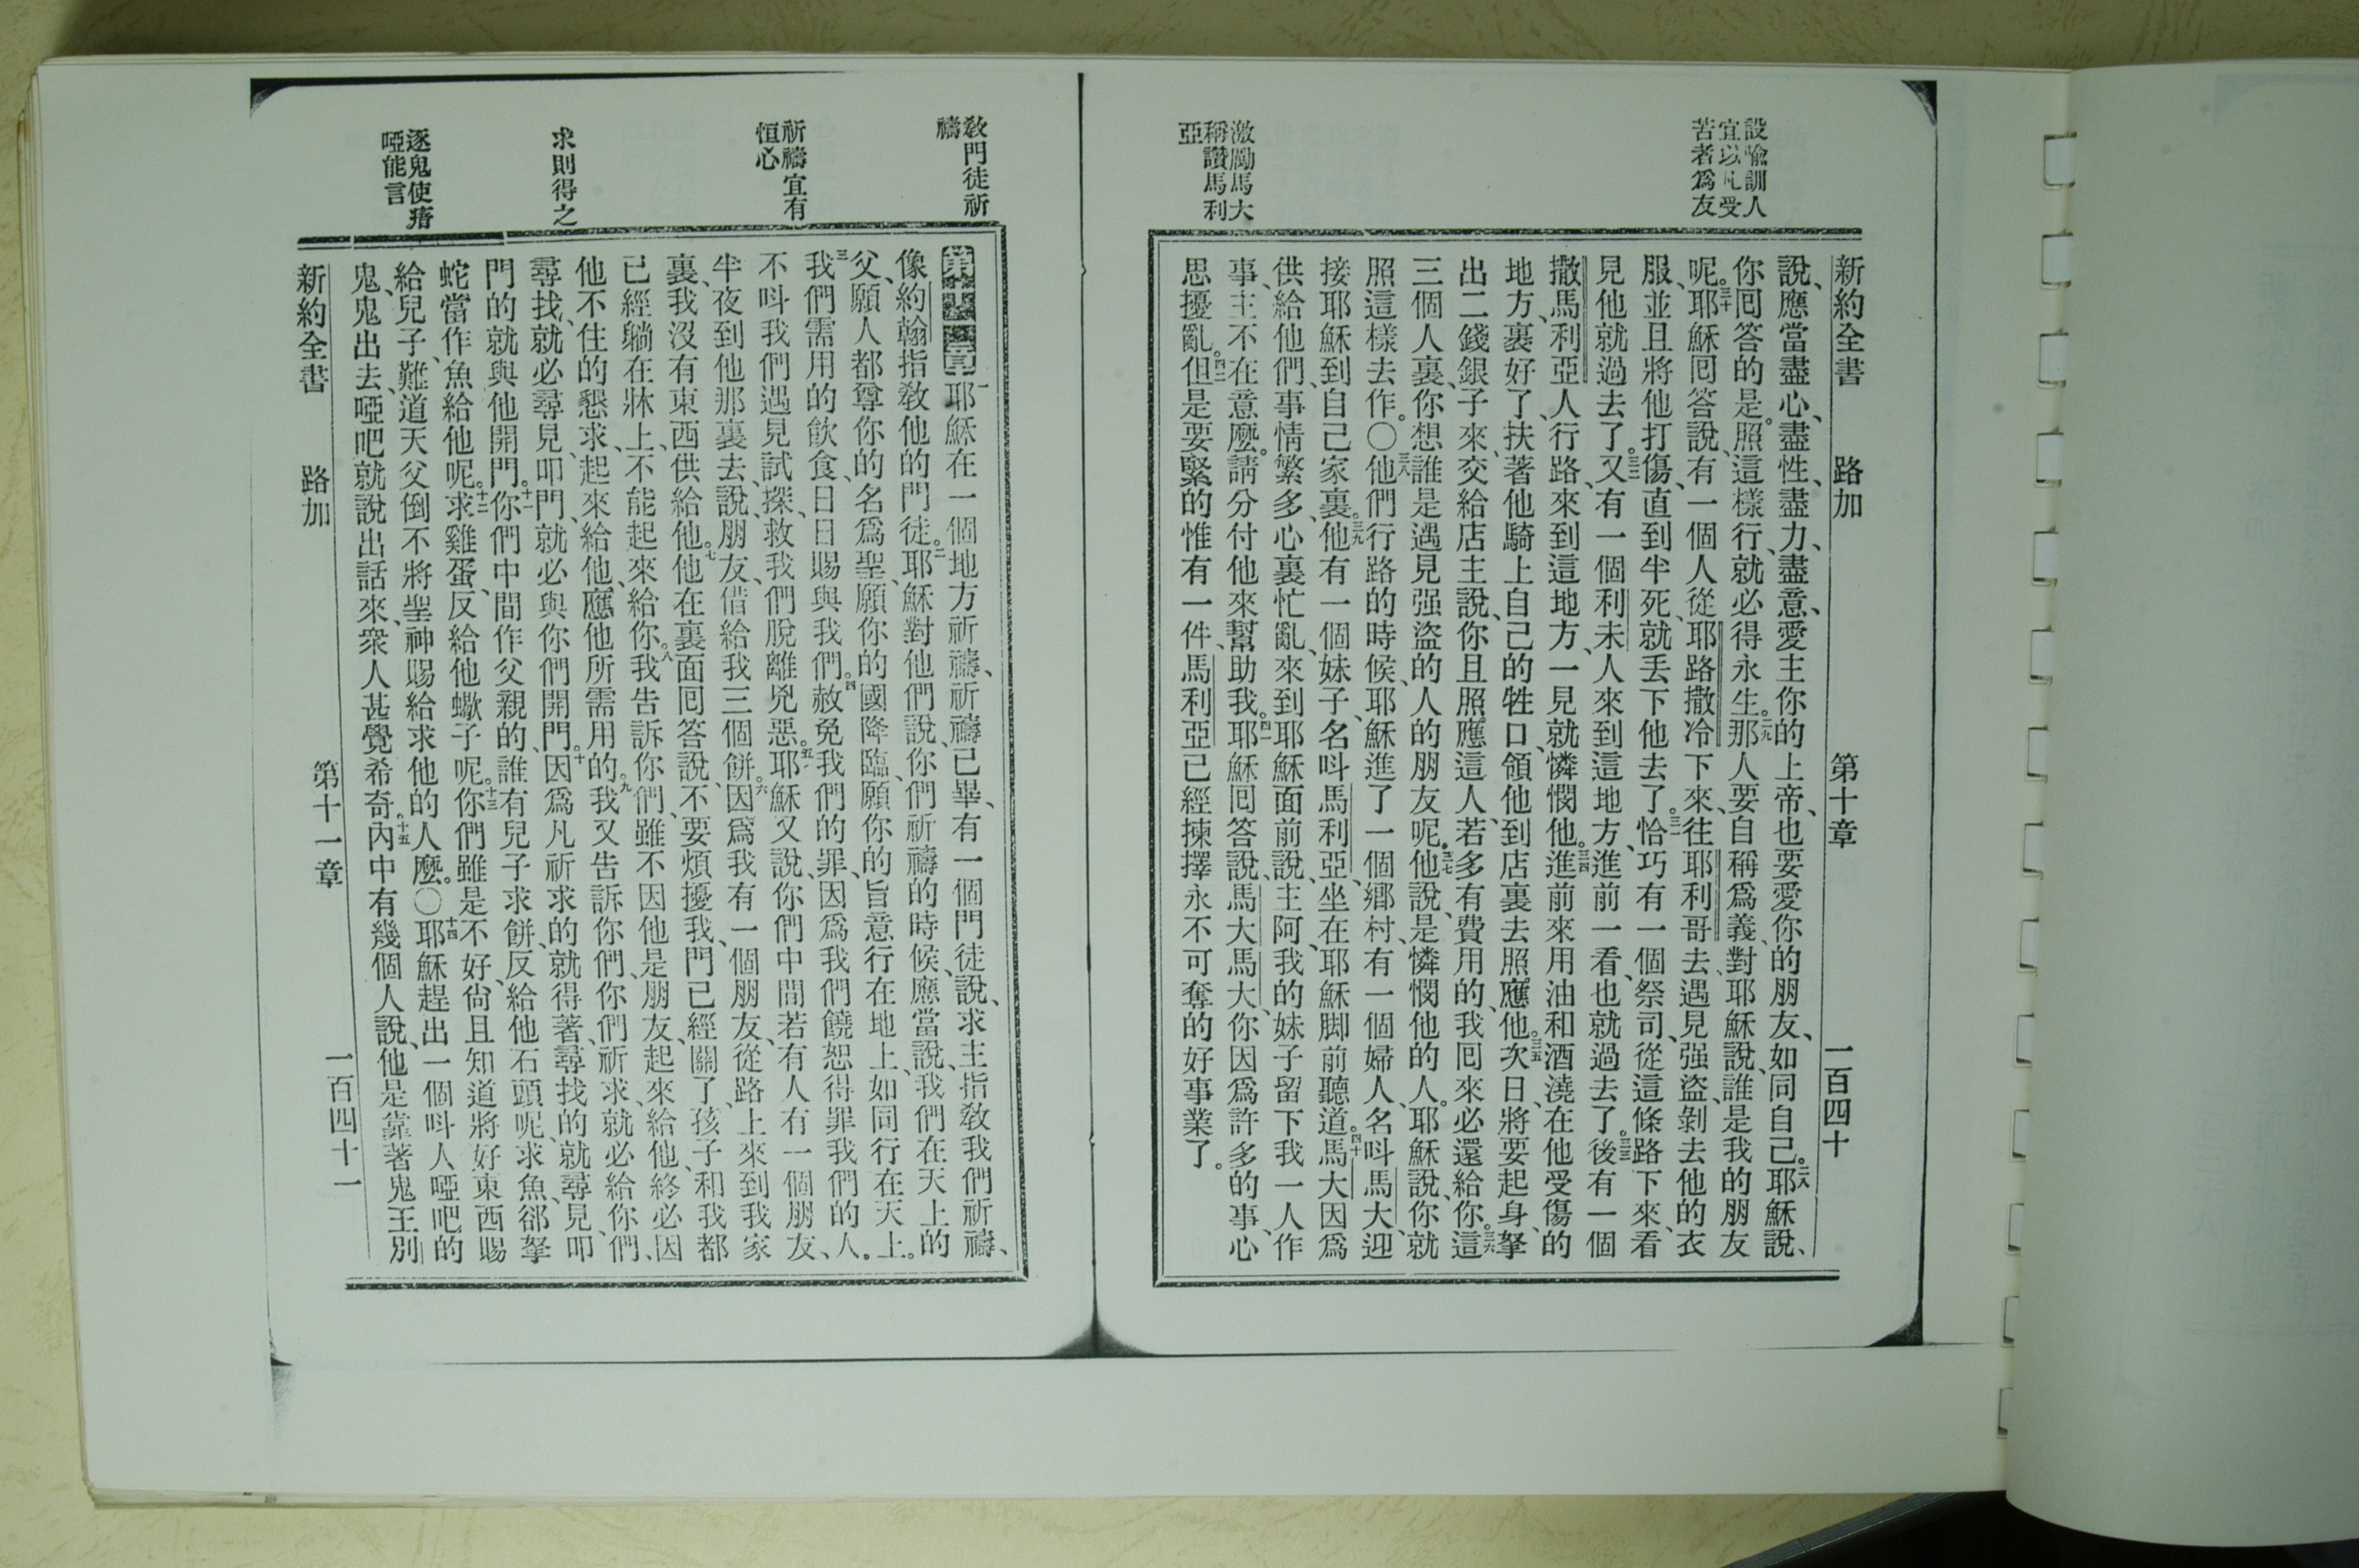 設喩訓人
宜以凡受
苦者爲友
激勵馬大
稱讚馬利
亞
新約全書 路加 第十章 一百四十
說、應當盡心、盡性、盡力、盡意、愛主你的上帝、也要愛你的朋友、如同自己。二八耶穌說、
你囘答的是。照這樣行、就必得永生。二九那人要自稱爲義、對耶穌說、誰是我的朋友
呢。三十耶穌囘答說、有一個人從耶路撒冷下來、往耶利哥去、遇見强盜、剝去他的衣
服、並且將他打傷、直到半死、就丟下他去了。三一恰巧有一個祭司、從這條路下來、看
見他就過去了。三二又有一個利未人來到這地方、進前一看、也就過去了。三三後有一個
撒馬利亞人行路、來到這地方、一見就憐憫他。三四進前來用油和酒澆在他受傷的
地方、裏好了、扶著他騎上自己的牲口、領他到店裏去照應他。三五次日將要起身、拏
出二錢銀子來、交給店主說、你且照應這人、若多有費用的、我囘來必還給你。三六這
三個人裏、你想誰是遇見强盜的人的朋友呢。三七他說、是憐憫他的人。耶穌說、你就
照這樣去作。〇三八他們行路的時候、耶穌進了一個鄉村、有一個婦人、名呌馬大、迎
接耶穌到自己家裏。三九他有一個妹子、名呌馬利亞、坐在耶穌脚前聽道。四十馬大因爲
供給他們、事情繁多、心裏忙亂、來到耶穌面前說、主阿、我的妹子留下我一人作
事、主不在意麼。請分付他來幫助我。四一耶穌囘答說、馬大馬大、你因爲許多的事、心
思擾亂。四二但是要緊的惟有一件、馬利亞已經揀擇永不可奪的好事業了。
敎門徒祈
禱
祈禱宜有
恒心
求則得之
逐鬼使瘖
啞能言
第十一章 一耶穌在一個地方祈禱、祈禱已畢、有一個門徒說、求主指敎我們祈禱、
像約翰指敎他的門徒。二耶穌對他們說、你們祈禱的時候、應當說、我們在天上的
父、願人都尊你的名爲聖、願你的國降臨、願你的旨意行在地上、如同行在天上。
三我們需用的飮食、日日賜與我們。四赦免我們的罪、因爲我們饒恕得罪我們的人。
不呌我們遇見試探、救我們脫離兇惡。五耶穌又說、你們中間若有人有一個朋友、
半夜到他那裏去、說、朋友、借給我三個餅。六因爲我有一個朋友、從路上來到我家
裏、我沒有東西供給他。七他在裏面囘答說、不要煩擾我、門已經關了、孩子和我都
已經躺在牀上、不能起來給你。八我告訴你們、雖不因他是朋友、起來給他、終必因
他不住的懇求、起來給他、應他所需用的。九我又告訴你們、你們祈求、就必給你們、
尋找、就必尋見、叩門、就必與你們開門。十因爲凡祈求的、就得著、尋找的、就尋見、叩
門的、就與他開門。十一你們中間作父親的、誰有兒子求餅、反給他石頭呢、求魚、郤拏
蛇當作魚給他呢。十二求雞蛋、反給他蠍子呢。十三你們雖是不好、尙且知道將好東西賜
給兒子、難道天父倒不將聖神賜給求他的人麼。〇十四耶穌趕出一個呌人啞吧的
鬼、鬼出去、啞吧就說出話來、衆人甚覺希奇。十五內中有幾個人說、他是靠著鬼王別
新約全書 路加 第十一章 一百四十一